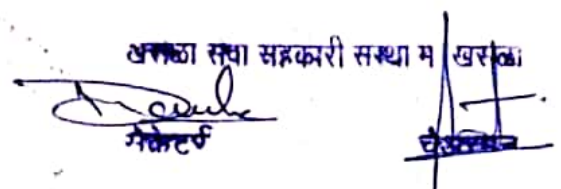 खसाळा सेवा सहकारी संस्था म खसाळा
सेक्रेटरी चेअरमन